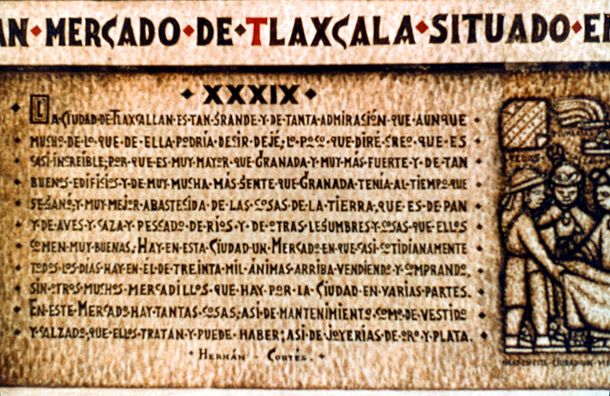 AN·MERCADO·DE·TLAXCALA·SITUADO·E
·XXXIX·
LA·CIUDAD·DE·TLAXCALLAN·ES·TAN·GRANDE·Y·DE·TANTA·ADMIRACIÓN·QUE·AUNQUE
MUCHO·DE·LO·QUE·DE·ELLA·PODRÍA·DECIR·DEJE, LO·POCO·QUE·DIRÉ·CREO·QUE·ES
CASI·INCREIBLE; POR·QUE·ES·MUY·MAYOR·QUE·GRANADA·Y·MUY·MÁS·FUERTE·Y·DE·TAN
BUENOS·EDIFICIOS·Y·DE·MUY·MUCHA·MÁS·GENTE·QUE·GRANADA·TENÍA·AL·TIEMPO·QUE
SE·GANO, Y·MUY·MEJOR·ABASTECIDA·DE·LAS·COSAS·DE·LA·TIERRA, QUE·ES·DE·PAN
Y·DE·AVES·Y·CAZA·Y·PESCADO·DE·RIOS·Y·DE·OTRAS·LEGUMBRES·Y·COSAS·QUE·ELLOS
COMEN·MUY·BUENAS; HAY·EN·ESTA·CIUDAD·UN·MERCADO·EN·QUE·CASI·COTIDIANAMENTE
TODOS·LOS·DÍAS·HAY·EN·ÉL·DE·TREINTA·MIL·ÁNIMAS·ARRIBA·VENDIENDO·Y·COMPRANDO,
SIN·OTROS·MUCHOS·MERCADILLOS·QUE·HAY·POR·LA·CIUDAD·EN·VARIAS·PARTES.
EN·ESTE·MERCADO·HAY·TANTAS·COSAS, ASI·DE·MANTENIMIENTO·COMO·DE·VESTIDO
Y·CALZADO, QUE·ELLOS·TRATAN·Y·PUEDE·HABER; ASI·DE·JOYERIAS·DE·ORO·Y·PLATA.
·HERNÁN·CORTÉS.·